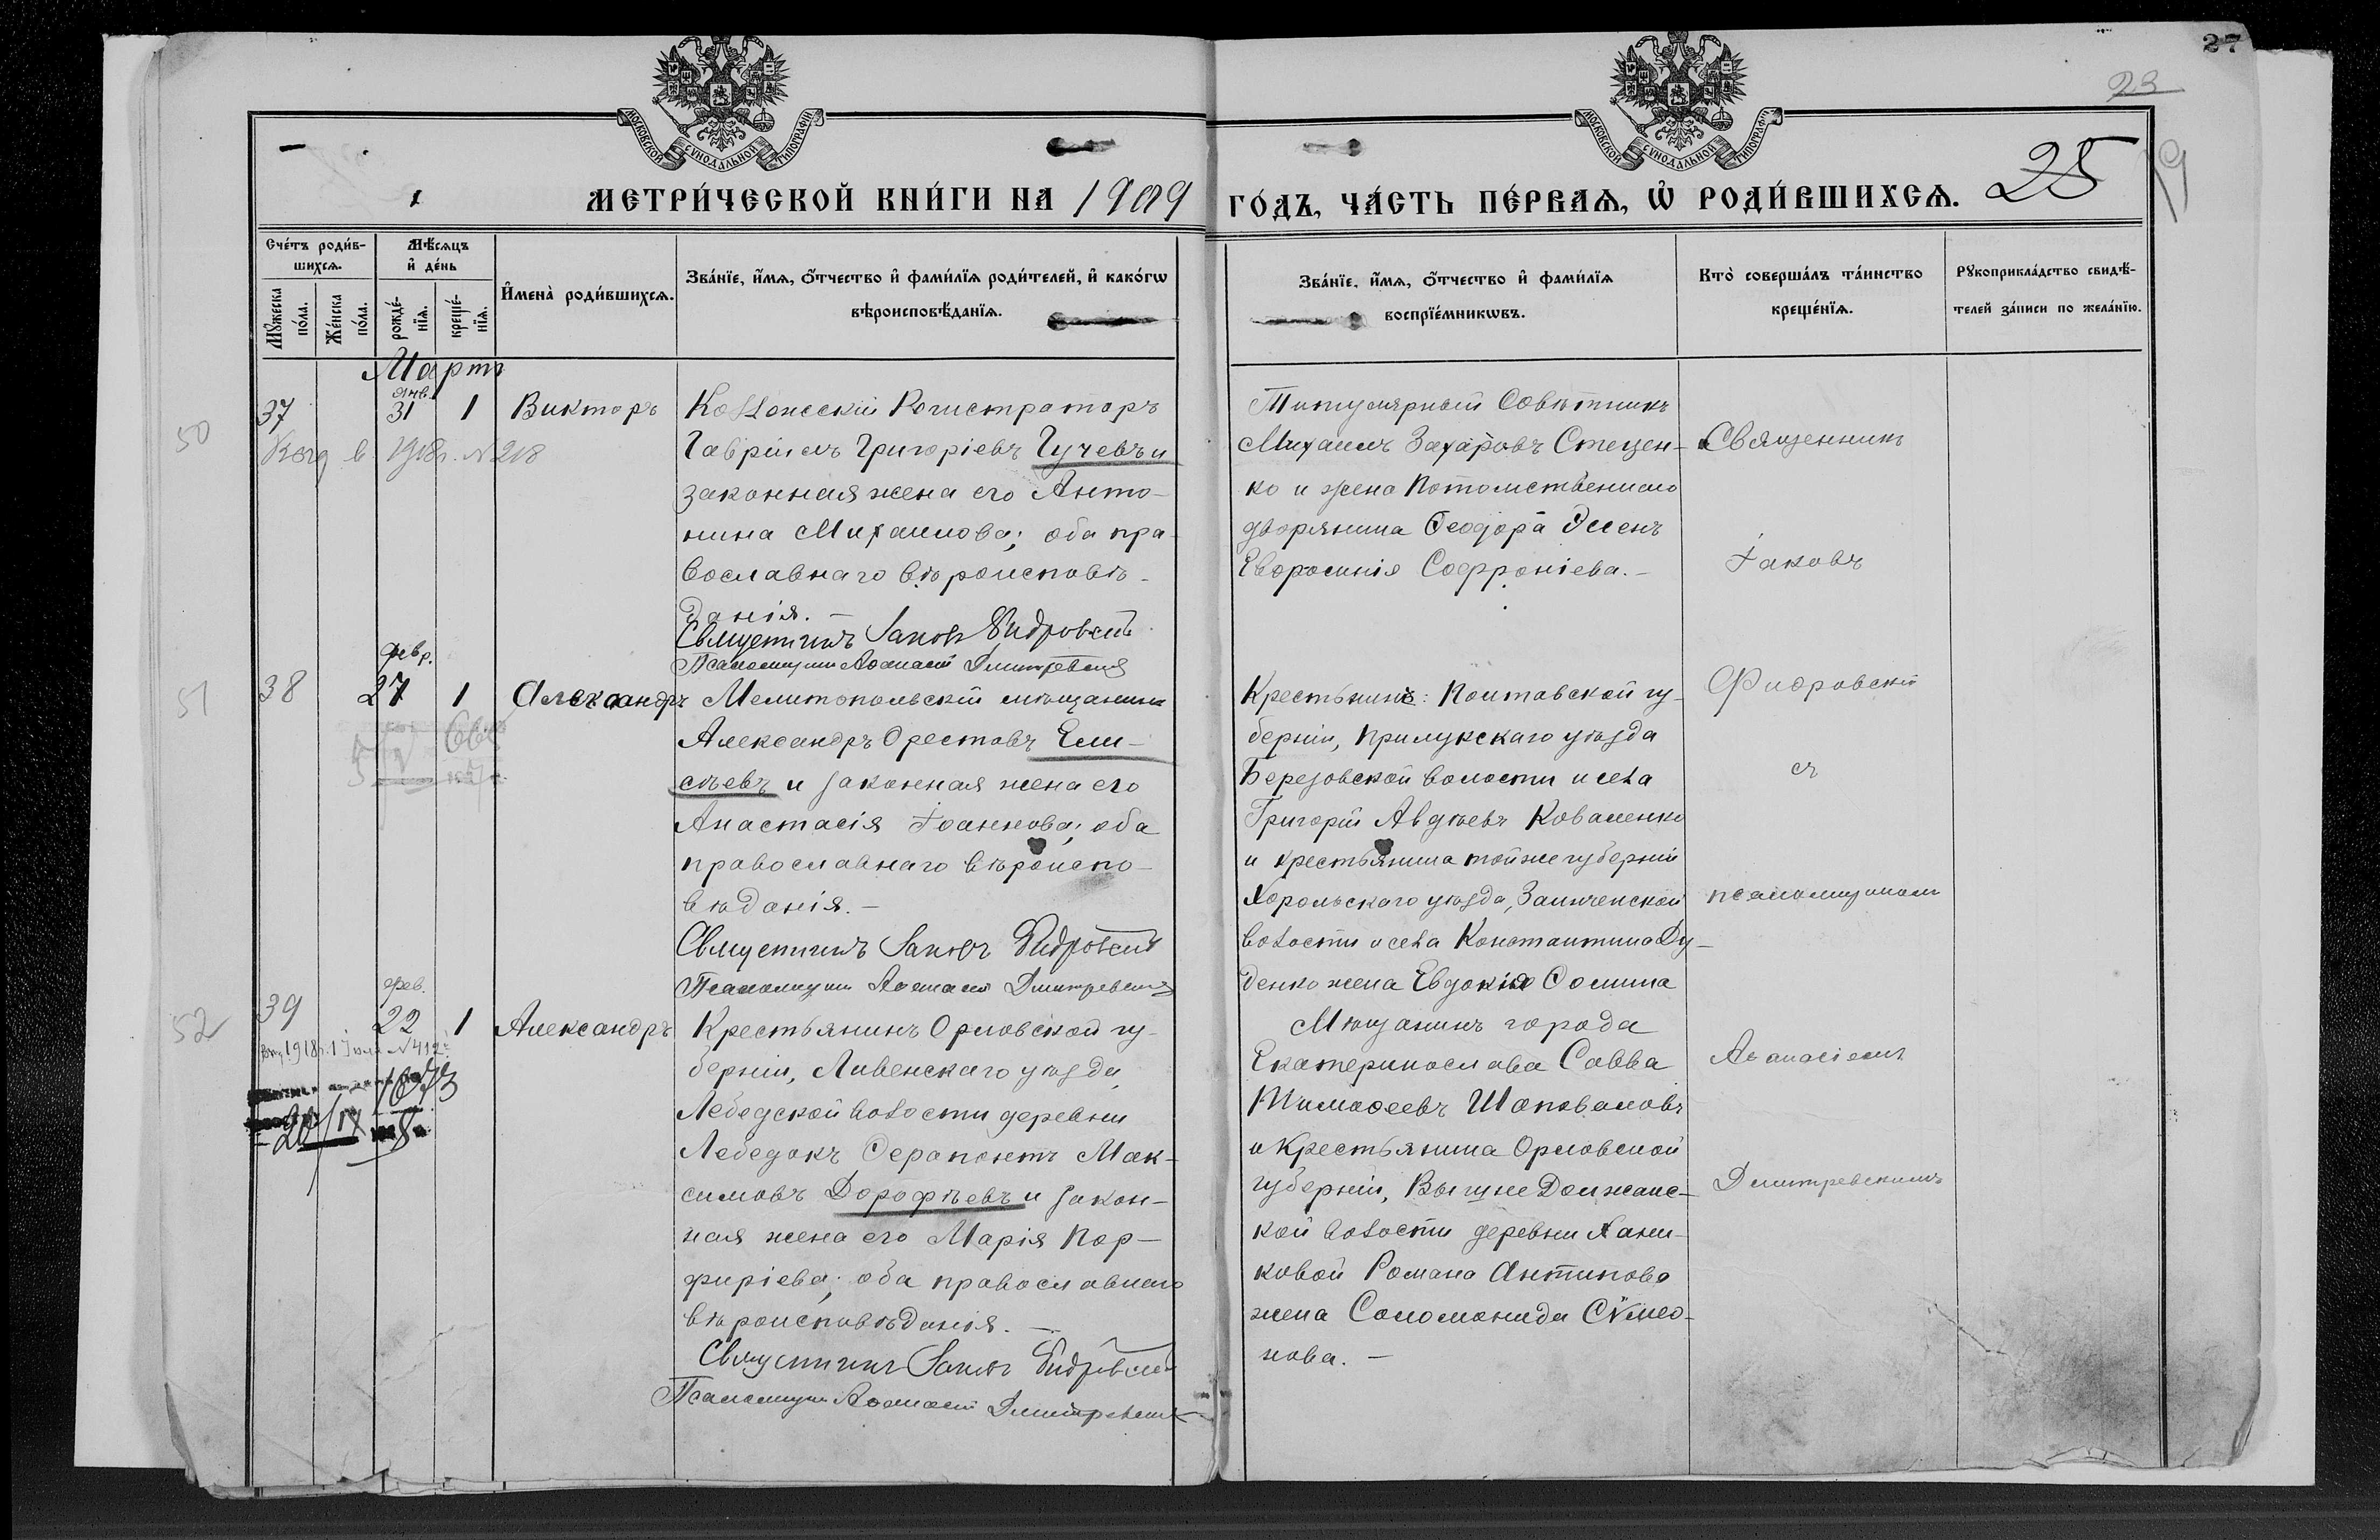 27
23
19
МОСКОВСКОЙ СѴНОДАЛЬНОЙ ТИПОГРАФІИ
МОСКОВСКОЙ СѴНОДАЛЬНОЙ ТИПОГРАФІИ
МЕТРИ́ЧЕСКОЙ КНИ́ГИ НА 1909
ГО́ДЪ, ЧА́СТЬ ПЕ́РВАѦ, Ѡ҆ РОДИ́ВШИХСѦ. 25
Сче́тъ роди́в-
шихсѧ.
Мꙋ́жеска по́ла.
Же́нска по́ла.
Мѣ́сѧцъ
и҆ де́нь
рожде́-нїѧ.
креще́-нїѧ.
И҆мена̀ роди́вшихсѧ.
Зва́нїе, и҆́мѧ, ѻ҆́тчество и҆ фами́лїѧ роди́телей, и҆ како́гѡ
вѣроисповѣ́данїѧ.
Зва́нїе, и҆́мѧ, ѻ҆́тчество и҆ фами́лїѧ
воспрїе́мникѡвъ.
Кто̀ соверша́лъ та́инство
креще́нїѧ.
Рꙋкоприкла́дство свидѣ́-
телей за́писи по жела́нїю.
Мартъ
50
37
янв.
31 1 Викторъ
в 1918 г. № 218
Коллежскій Регистраторъ
Гавріилъ Григоріевъ Гучевъ и
законная жена его Анто-
нина Михаилова; оба пра-
вославнаго вѣроисповѣ-
данія. —
Священникъ Іаковъ Фидровскій
Псаломщикъ Аѳанасій Дмитревскій
Титулярный Совѣтникъ
Михаилъ Захаровъ Стецен-
ко и жена Потомственнаго
дворянина Ѳеодора Эсенъ
Евфросинія Софроніева. —
Священникъ
Іаковъ
Фидровскій
съ
псаломщикомъ
Аѳанасіемъ
Дмитревскимъ
51
38
февр.
27 1 Александръ
Мелитопольскій мѣщанинъ
Александръ Орестовъ Ели-
сѣевъ и законная жена его
Анастасія Іоаннова; оба
православнаго вѣроиспо-
вѣданія. —
Священникъ Іаковъ Фидровскій
Псаломщикъ Аѳанасій Дмитревскій
Крестьянинъ: Полтавской гу-
берніи, Прилукскаго уѣзда
Березовской волости и села
Григорій Авдѣевъ Коваленко
и крестьянина той же губерніи
Хорольскаго уѣзда, Заиченской
волости и села Константина Ду-
денко жена Евдокія Сомина
52
39
фев.
22 1 Александръ
1918 г. 1 Іюля № 412
1073
20/IX
Крестьянинъ Орловской гу-
берніи, Ливенскаго уѣзда,
Лебедской волости деревни
Лебедокъ Серапонтъ Мак-
симовъ Дорофѣевъ и закон-
ная жена его Марія Пор-
фиріева; оба православнаго
вѣроисповѣданія. —
Священникъ Іаковъ Фидровскій
Псаломщикъ Аѳанасій Дмитревскій
Мѣщанинъ города
Екатеринослава Савва
Тимоѳеевъ Шаповаловъ
и Крестьянина Орловской
губерніи, Вышне Должанс-
кой волости деревни Хани-
ковой Романа Антипова
жена Соломонида Сѵмео-
нова. —